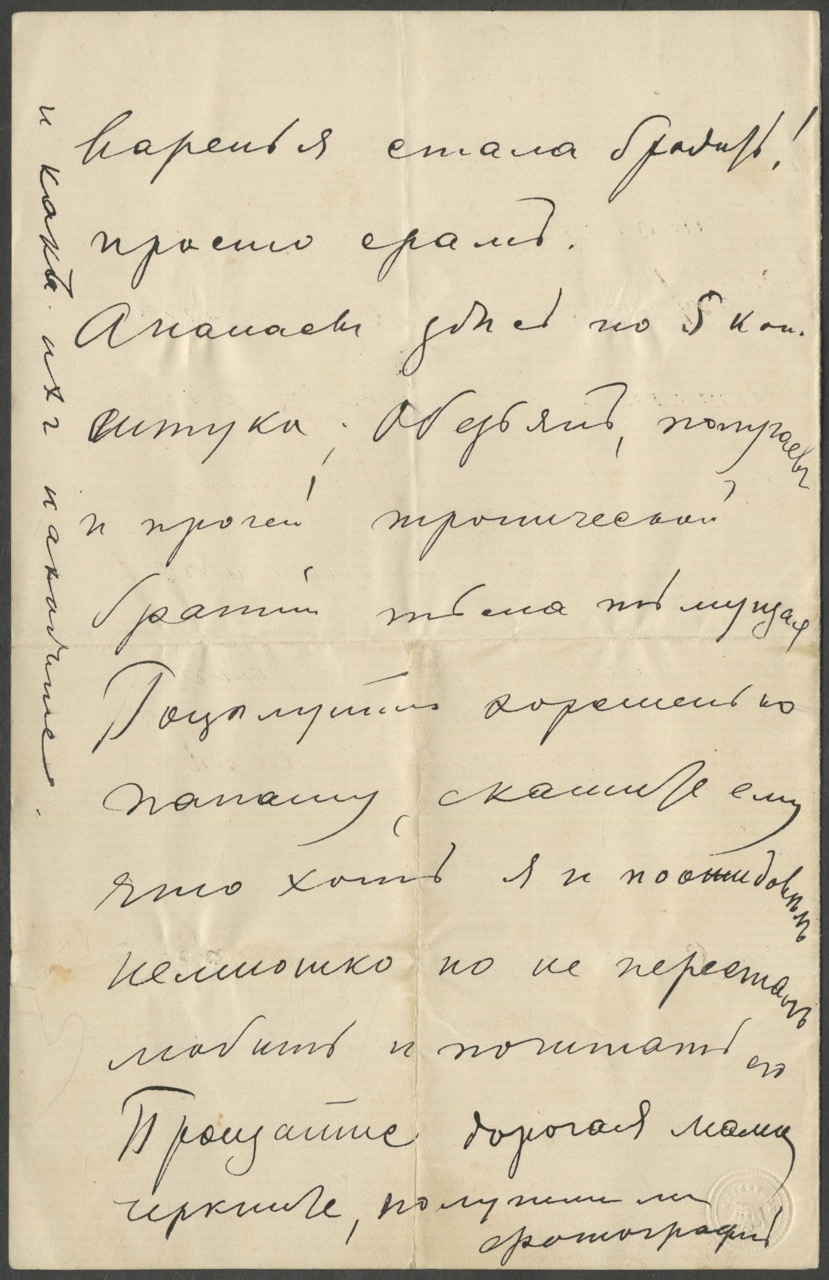 варенья стала бродить!
просто срамъ.
Ананасы здѣсь по 5 коп.
штука; Обезьянъ, попугаевъ
и прочей тропической
братіи тьма тьмущая
Поцѣлуйте хорошенько
папашу, скажите ему
что хоть я и
немножко но не пересталъ
любить и почитать его
Прощайте дорогая мама
черкните, получили ли
фотографіи
и какъ ихъ находите.